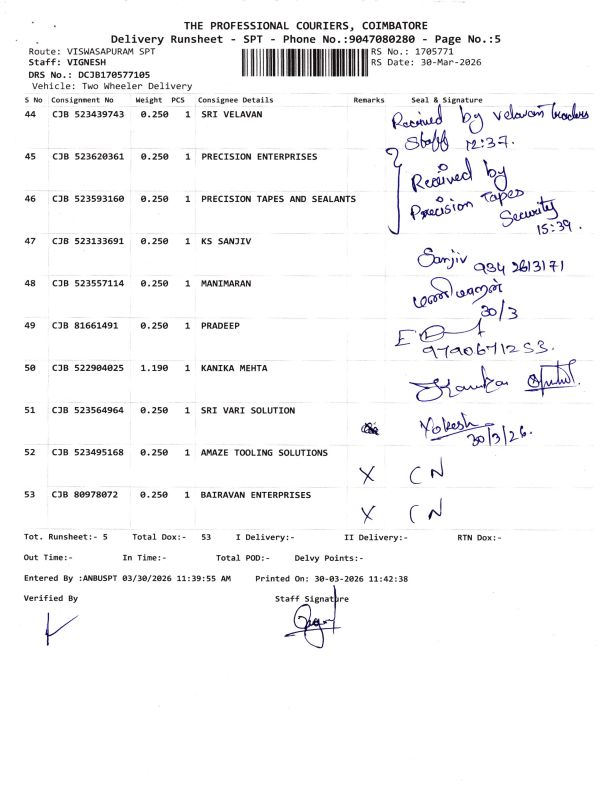 THE PROFESSIONAL COURIERS, COIMBATORE
Delivery Runsheet - SPT - Phone No.:9047080280 - Page No.:5
Route: VISWASAPURAM SPT RS No.: 1705771
Staff: VIGNESH RS Date: 30-Mar-2026
DRS No.: DCJB170577105
Vehicle: Two Wheeler Delivery
S No Consignment No Weight PCS Consignee Details Remarks Seal & Signature
44 CJB 523439743 0.250 1 SRI VELAVAN Received by Velavan traders
Staff 12:37.
45 CJB 523620361 0.250 1 PRECISION ENTERPRISES
Received by
46 CJB 523593160 0.250 1 PRECISION TAPES AND SEALANTS Precision Tapes
Security
15:39.
47 CJB 523133691 0.250 1 KS SANJIV Sanjiv 934 2613171
48 CJB 523557114 0.250 1 MANIMARAN மணிமாறன்
30/3
49 CJB 81661491 0.250 1 PRADEEP
9790671253.
50 CJB 522904025 1.190 1 KANIKA MEHTA
51 CJB 523564964 0.250 1 SRI VARI SOLUTION Yokesh
30/3/26.
52 CJB 523495168 0.250 1 AMAZE TOOLING SOLUTIONS X CN
53 CJB 80978072 0.250 1 BAIRAVAN ENTERPRISES X CN
Tot. Runsheet:- 5 Total Dox:- 53 I Delivery:- II Delivery:- RTN Dox:-
Out Time:- In Time:- Total POD:- Delvy Points:-
Entered By :ANBUSPT 03/30/2026 11:39:55 AM Printed On: 30-03-2026 11:42:38
Verified By Staff Signature